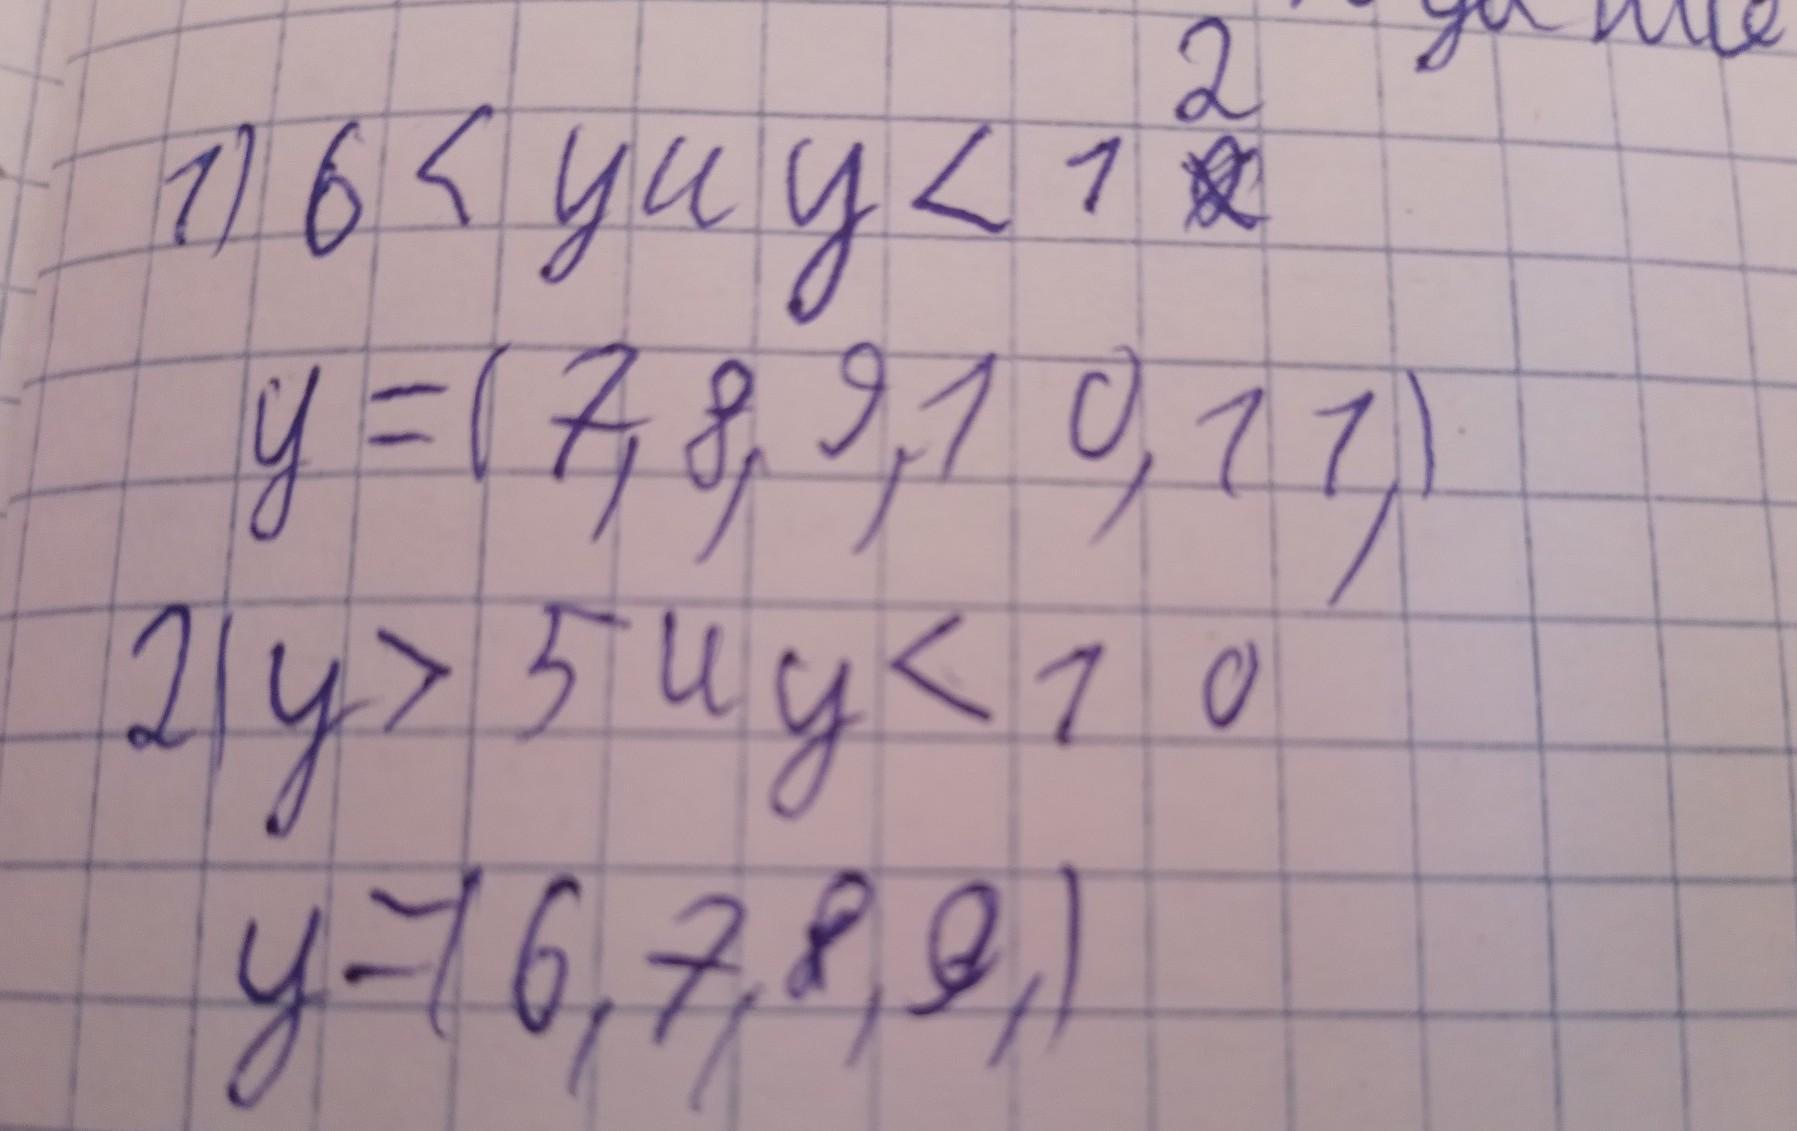 1) 6 < y и y < 12
y = (7, 8, 9, 10, 11,)
2) y > 5 и y < 10
y = (6, 7, 8, 9,)